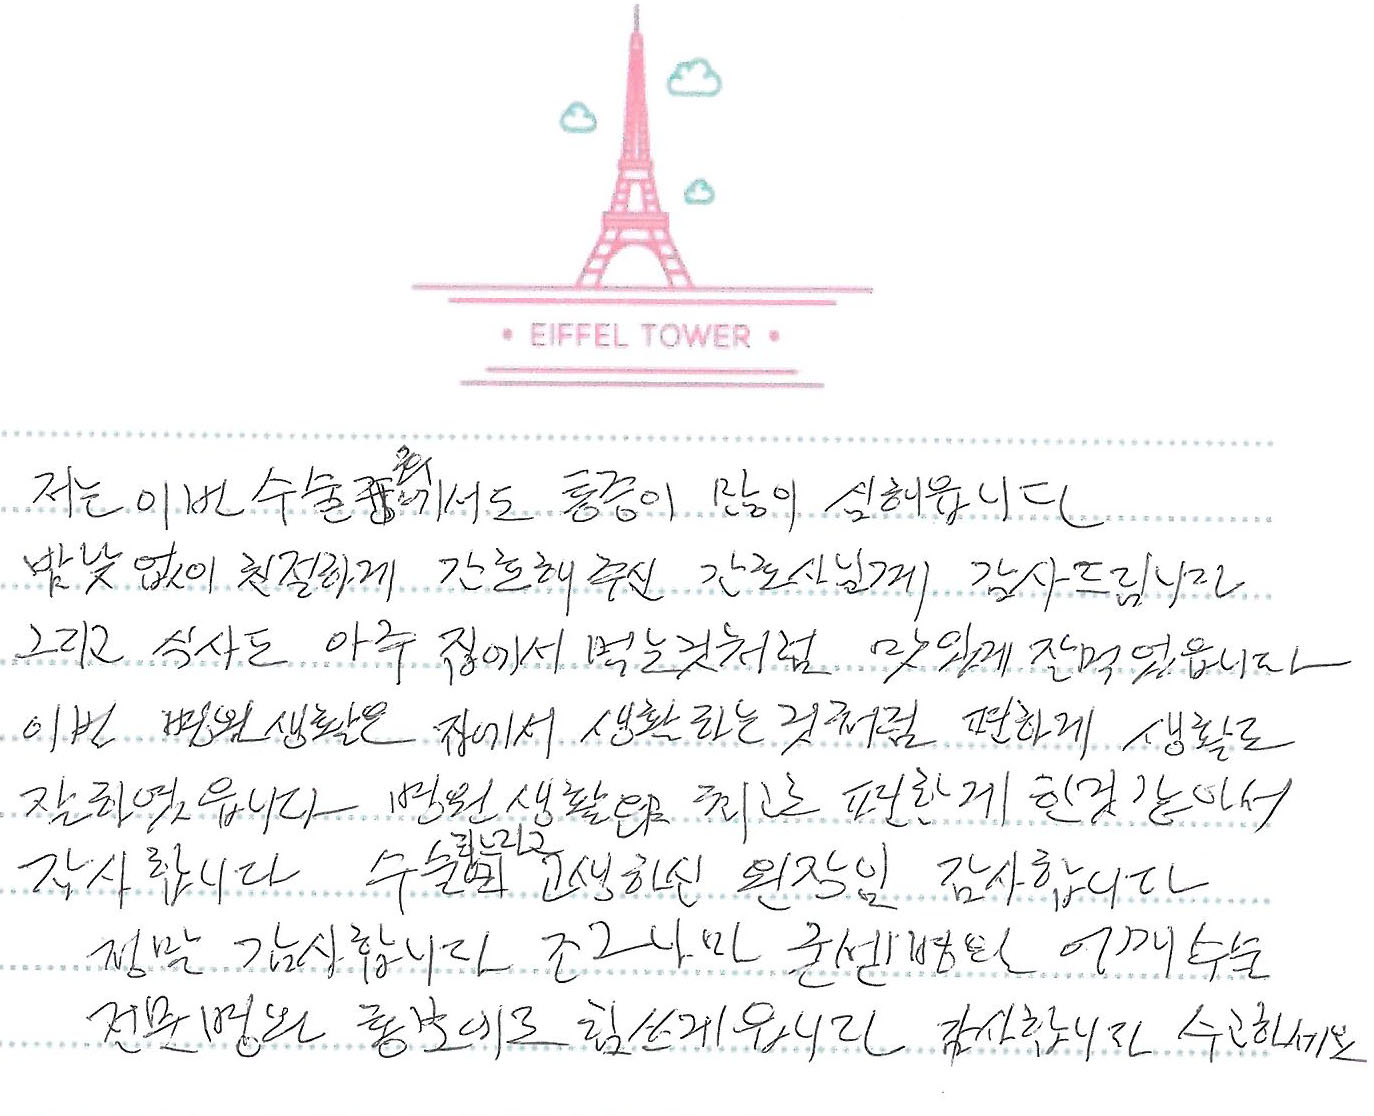 EIFFEL TOWER
저는 이번 수술 중에서도 통증이 많이 심해읍니다
밤낮 없이 친절하게 간호해 주신 간호사님께 감사드림니다
그리고 식사도 아주 집에서 먹는것처럼 맛있게 잘먹었읍니다
이번 병원생활은 집에서 생활하는 것처럼 편하게 생활도
잘하였읍니다 병원 생활 최고로 편한게 한것 같아서
감사합니다 수술 고생하신 원장님 감사합니다
정말 감사합니다 조그나마 굳센병원 어깨수술
전문병원 홍보에도 힘쓰게읍니다 감사합니다 수고하세요